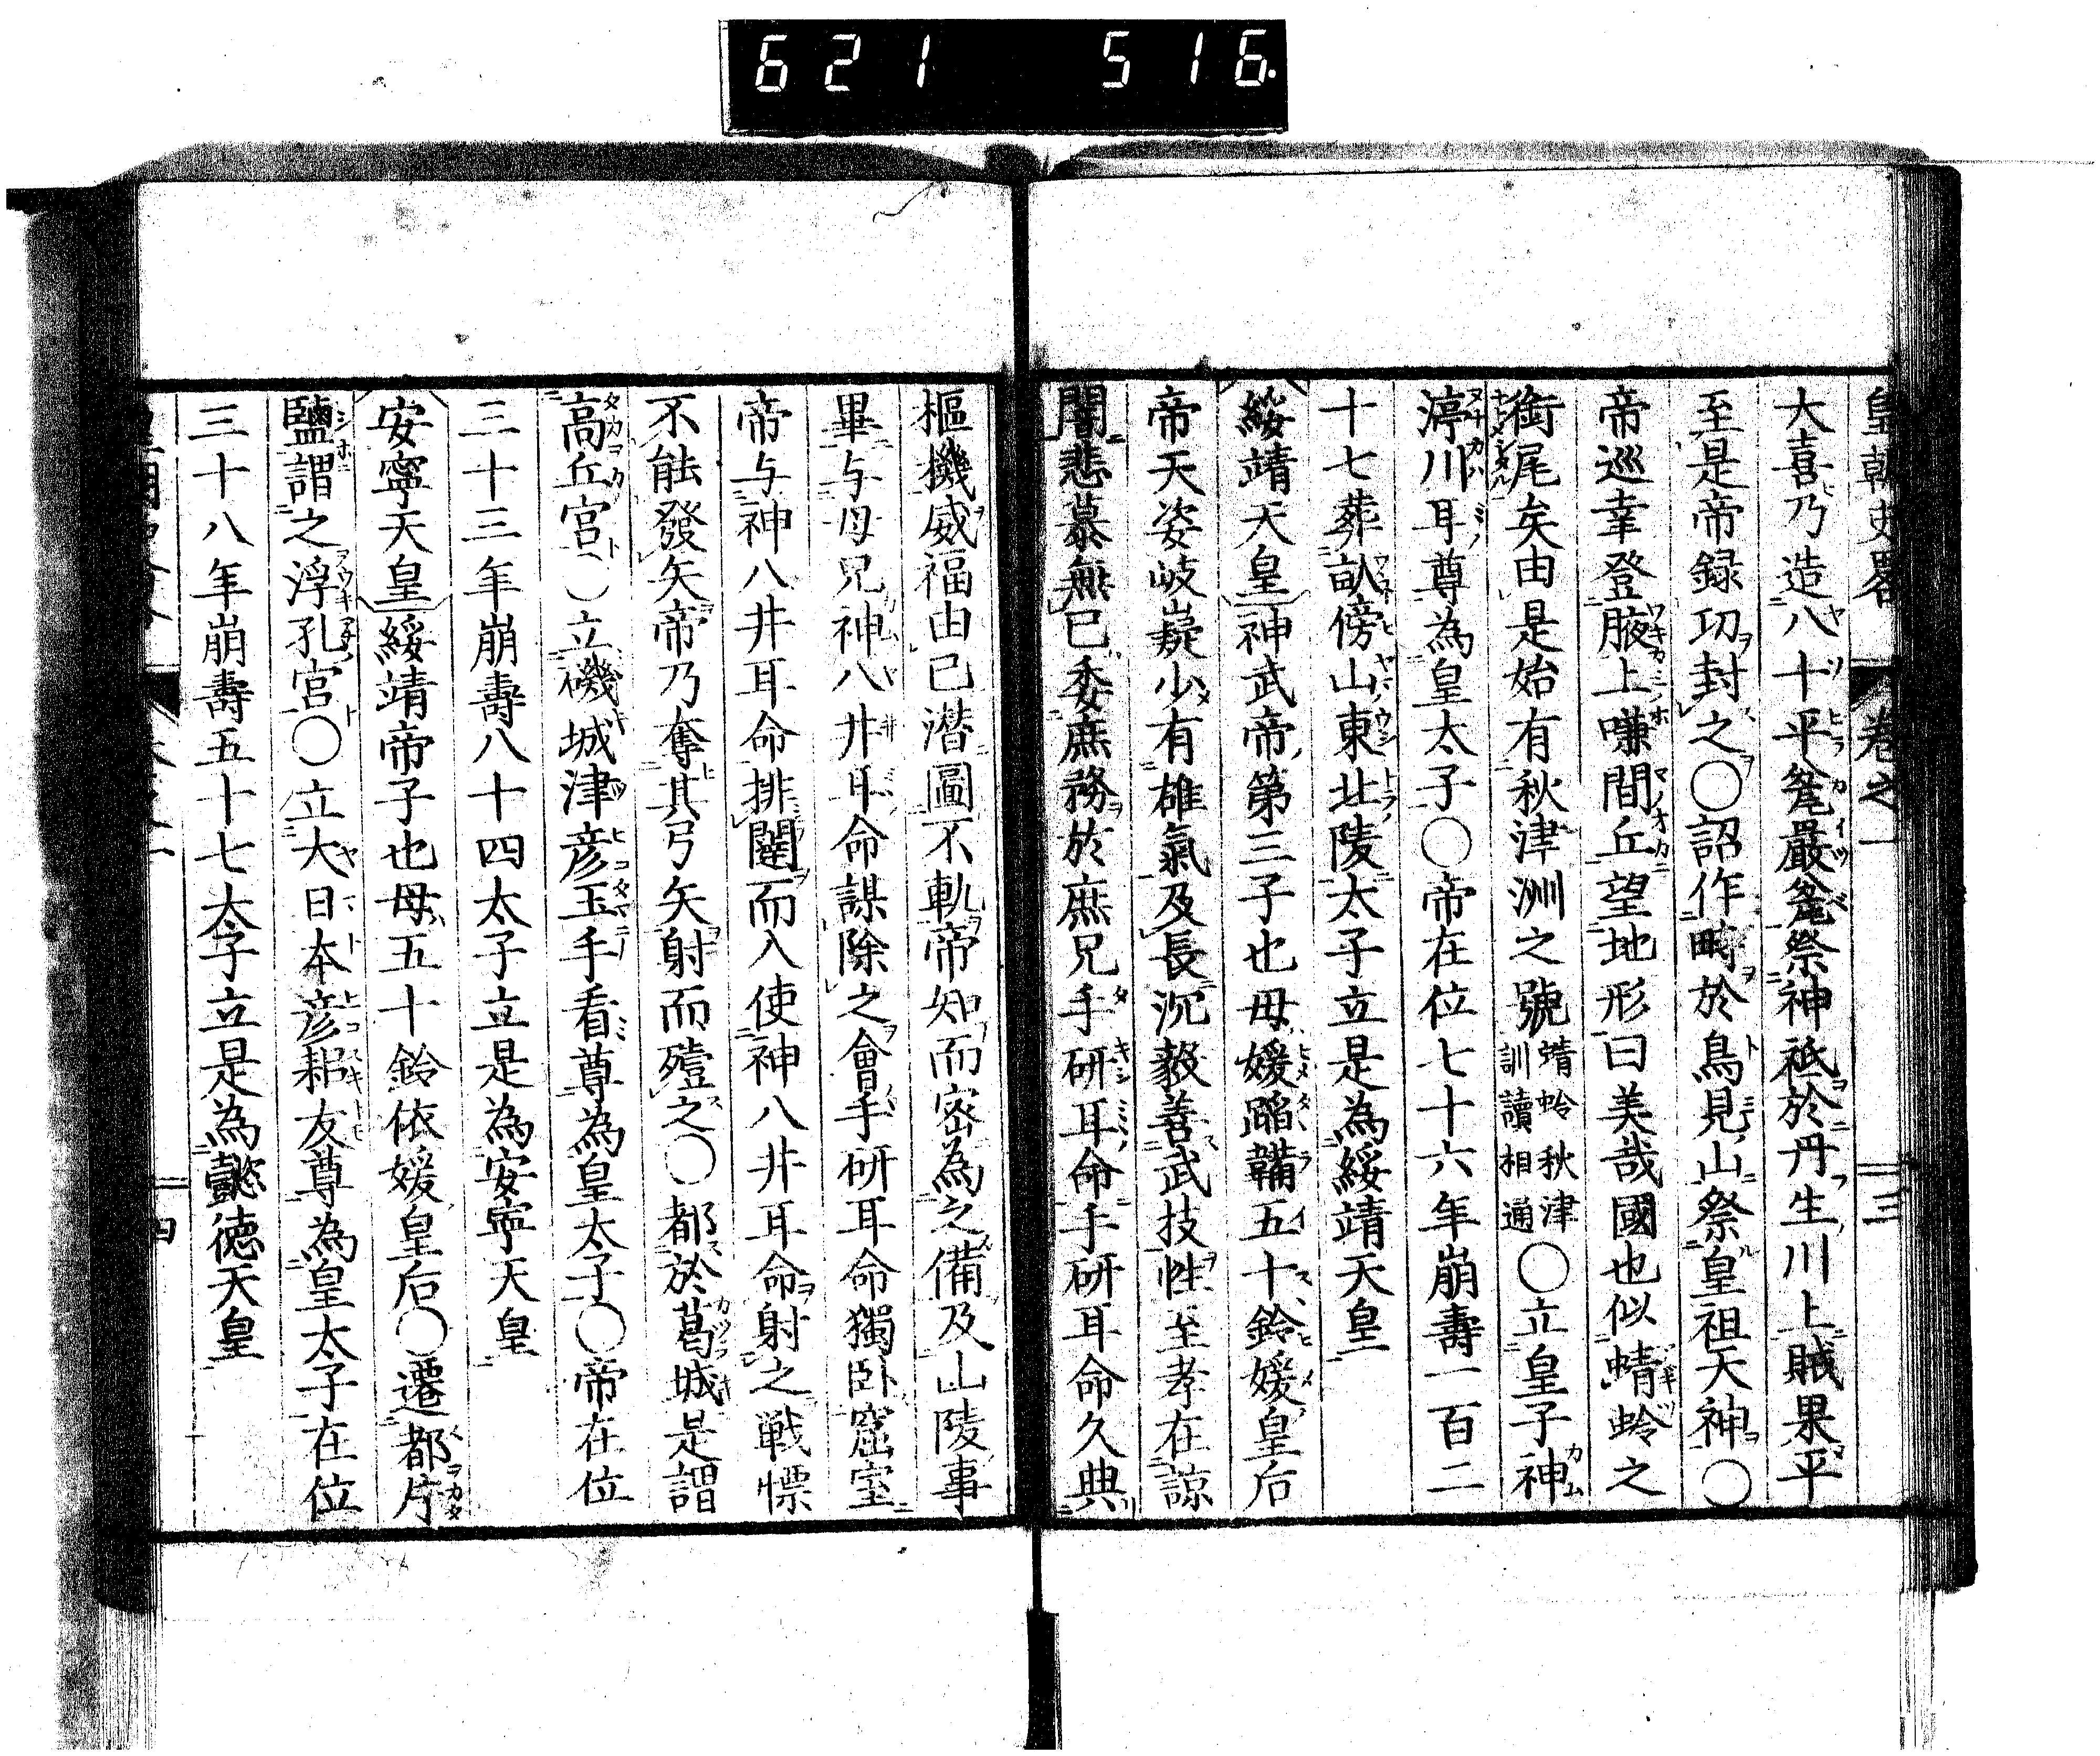 621 516.
皇朝史畧 卷之一 三
大喜乃造八十平瓮嚴瓮祭神祇於丹生川上賊果平
至是帝録功封之〇詔作畤於鳥見山祭皇祖天神〇
帝巡幸登腋上嗛間丘望地形曰美哉國也似蜻蛉之
銜尾矣由是始有秋津洲之號蜻蛉秋津訓讀相通〇立皇子神
渟川耳尊為皇太子〇帝在位七十六年崩壽一百二
十七葬畝傍山東北陵太子立是為綏靖天皇
綏靖天皇神武帝第三子也母媛蹈鞴五十鈴媛皇后
帝天姿岐嶷少有雄氣及長沉毅善武技性至孝在諒
闇悲慕無已委庶務於庶兄手研耳命手研耳命久典
樞機威福由已潜圖不軌帝知而密為之備及山陵事
畢与母兄神八井耳命謀除之會手研耳命獨卧窟室
帝与神八井耳命排闥而入使神八井耳命射之戦慄
不能發矢帝乃奪其弓矢射而殪之〇都於葛城是謂
高丘宮〇立磯城津彦玉手看尊為皇太子〇帝在位
三十三年崩壽八十四太子立是為安寧天皇
安寧天皇綏靖帝子也母五十鈴依媛皇后〇遷都片
鹽謂之浮孔宮〇立大日本彦耜友尊為皇太子在位
三十八年崩壽五十七太子立是為懿徳天皇
四